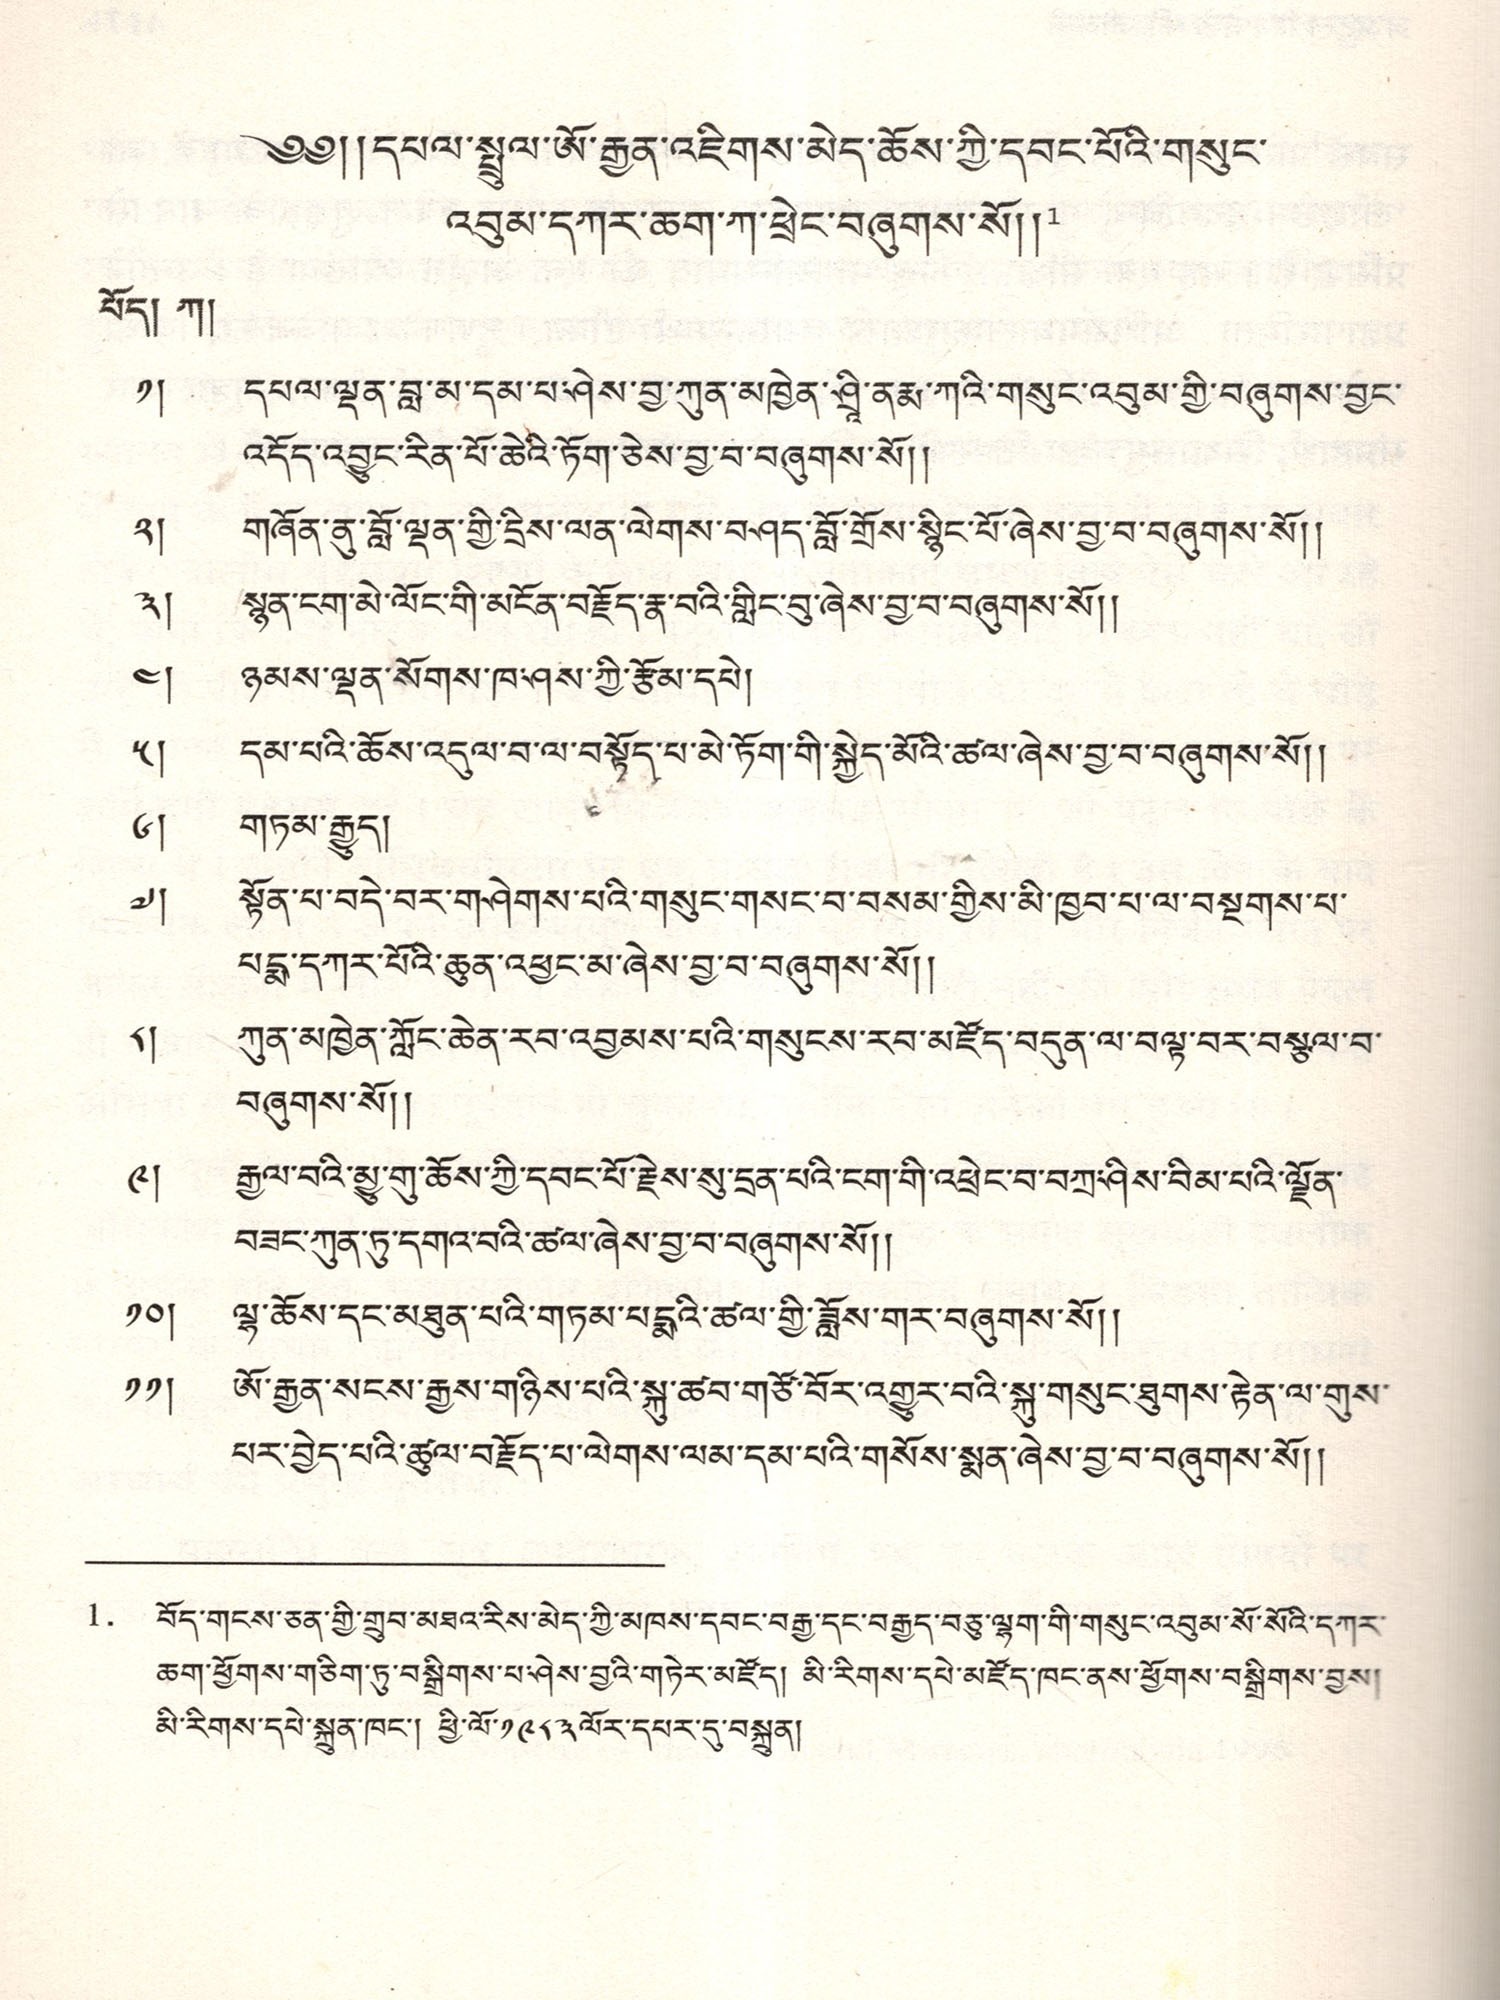 ༄༅།།དཔལ་སྤྲུལ་ཨོ་རྒྱན་འཇིགས་མེད་ཆོས་ཀྱི་དབང་པོའི་གསུང་
འབུམ་དཀར་ཆག་ཀ་ཕྲེང་བཞུགས་སོ།།1
པོད། ཀ།
༡། དཔལ་ལྡན་བླ་མ་དམ་པ་ཤེས་བྱ་ཀུན་མཁྱེན་ཤྲཱི་ནརྨ་ཀའི་གསུང་འབུམ་གྱི་བཞུགས་བྱང་
འདོད་འབྱུང་རིན་པོ་ཆེའི་ཏོག་ཅེས་བྱ་བ་བཞུགས་སོ།།
༢། གཞོན་ནུ་བློ་ལྡན་གྱི་དྲིས་ལན་ལེགས་བཤད་བློ་གྲོས་སྙིང་པོ་ཞེས་བྱ་བ་བཞུགས་སོ།།
༣། སྙན་ངག་མེ་ལོང་གི་མངོན་བརྗོད་རྣ་བའི་གླིང་བུ་ཞེས་བྱ་བ་བཞུགས་སོ།།
༤། ཉམས་ལྡན་སོགས་ཁ་ཤས་ཀྱི་རྩོམ་དཔེ།
༥། དམ་པའི་ཆོས་འདུལ་བ་ལ་བསྟོད་པ་མེ་ཏོག་གི་སྐྱེད་མོའི་ཚལ་ཞེས་བྱ་བ་བཞུགས་སོ།།
༦། གཏམ་རྒྱུད།
༧། སྟོན་པ་བདེ་བར་གཤེགས་པའི་གསུང་གསང་བ་བསམ་གྱིས་མི་ཁྱབ་པ་ལ་བསྔགས་པ་
པདྨ་དཀར་པོའི་ཆུན་འཕྱང་མ་ཞེས་བྱ་བ་བཞུགས་སོ།།
༨། ཀུན་མཁྱེན་ཀློང་ཆེན་རབ་འབྱམས་པའི་གསུངས་རབ་མཛོད་བདུན་ལ་བལྟ་བར་བསྐུལ་བ་
བཞུགས་སོ།།
༩། རྒྱལ་བའི་མྱུ་གུ་ཆོས་ཀྱི་དབང་པོ་རྗེས་སུ་དྲན་པའི་ངག་གི་འཕྲེང་བ་བཀྲ་ཤིས་བིམ་པའི་ལྗོན་
བཟང་ཀུན་ཏུ་དགའ་བའི་ཚལ་ཞེས་བྱ་བ་བཞུགས་སོ།།
༡༠། ལྷ་ཆོས་དང་མཐུན་པའི་གཏམ་པདྨའི་ཚལ་གྱི་ཟློས་གར་བཞུགས་སོ།།
༡༡། ཨོ་རྒྱན་སངས་རྒྱས་གཉིས་པའི་སྐུ་ཚབ་གཙོ་བོར་འགྱུར་བའི་སྐུ་གསུང་ཐུགས་རྟེན་ལ་གུས་
པར་བྱེད་པའི་ཚུལ་བརྗོད་པ་ལེགས་ལམ་དམ་པའི་གསོས་སྨན་ཞེས་བྱ་བ་བཞུགས་སོ།།
1. བོད་གངས་ཅན་གྱི་གྲུབ་མཐའ་རིས་མེད་ཀྱི་མཁས་དབང་བརྒྱ་དང་བརྒྱད་བཅུ་ལྷག་གི་གསུང་འབུམ་སོ་སོའི་དཀར་
ཆག་ཕྱོགས་གཅིག་ཏུ་བསྒྲིགས་པ་ཤེས་བྱའི་གཏེར་མཛོད། མི་རིགས་དཔེ་མཛོད་ཁང་ནས་ཕྱོགས་བསྒྲིགས་བྱས།
མི་རིགས་དཔེ་སྐྲུན་ཁང་། ཕྱི་ལོ་༡༩༨༣ལོར་དཔར་དུ་བསྐྲུན།